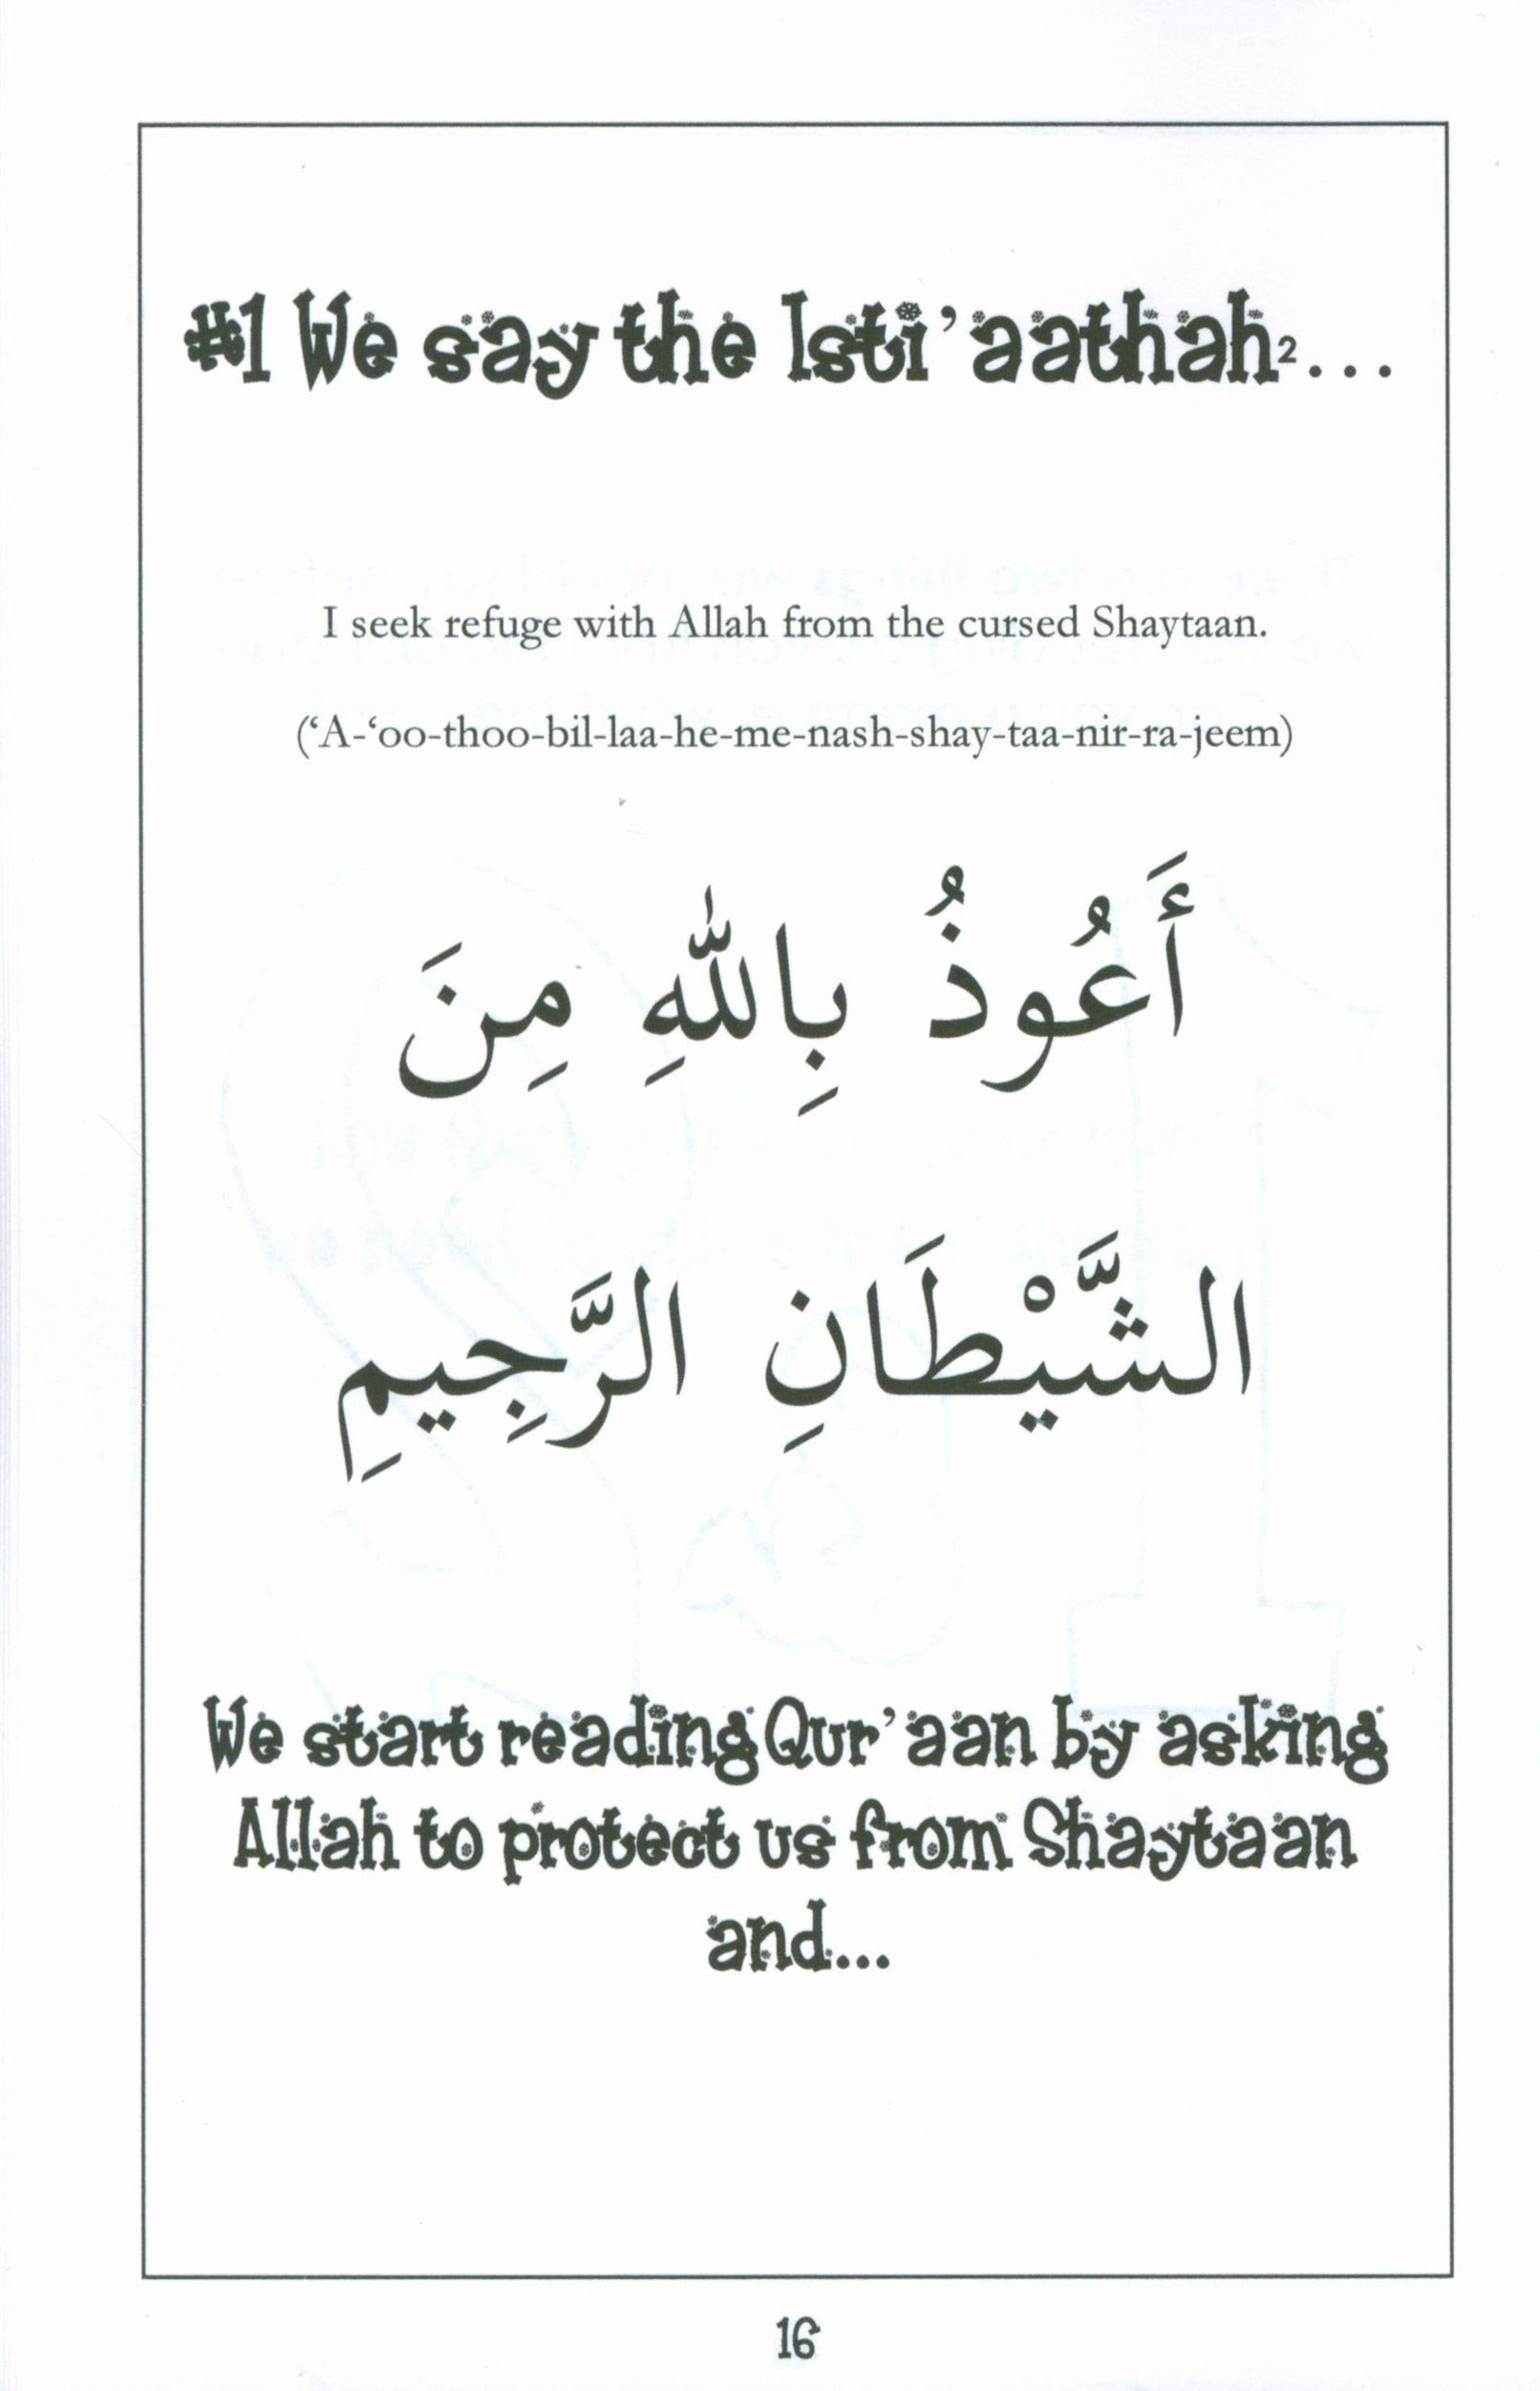 #1 We say the Isti’aathah²...
I seek refuge with Allah from the cursed Shaytaan.
(‘A-‘oo-thoo-bil-laa-he-me-nash-shay-taa-nir-ra-jeem)
أَعُوذُ بِاللّٰهِ مِنَ
الشَّيْطَانِ الرَّجِيمِ
We start reading Qur’aan by asking
Allah to protect us from Shaytaan
and...
16